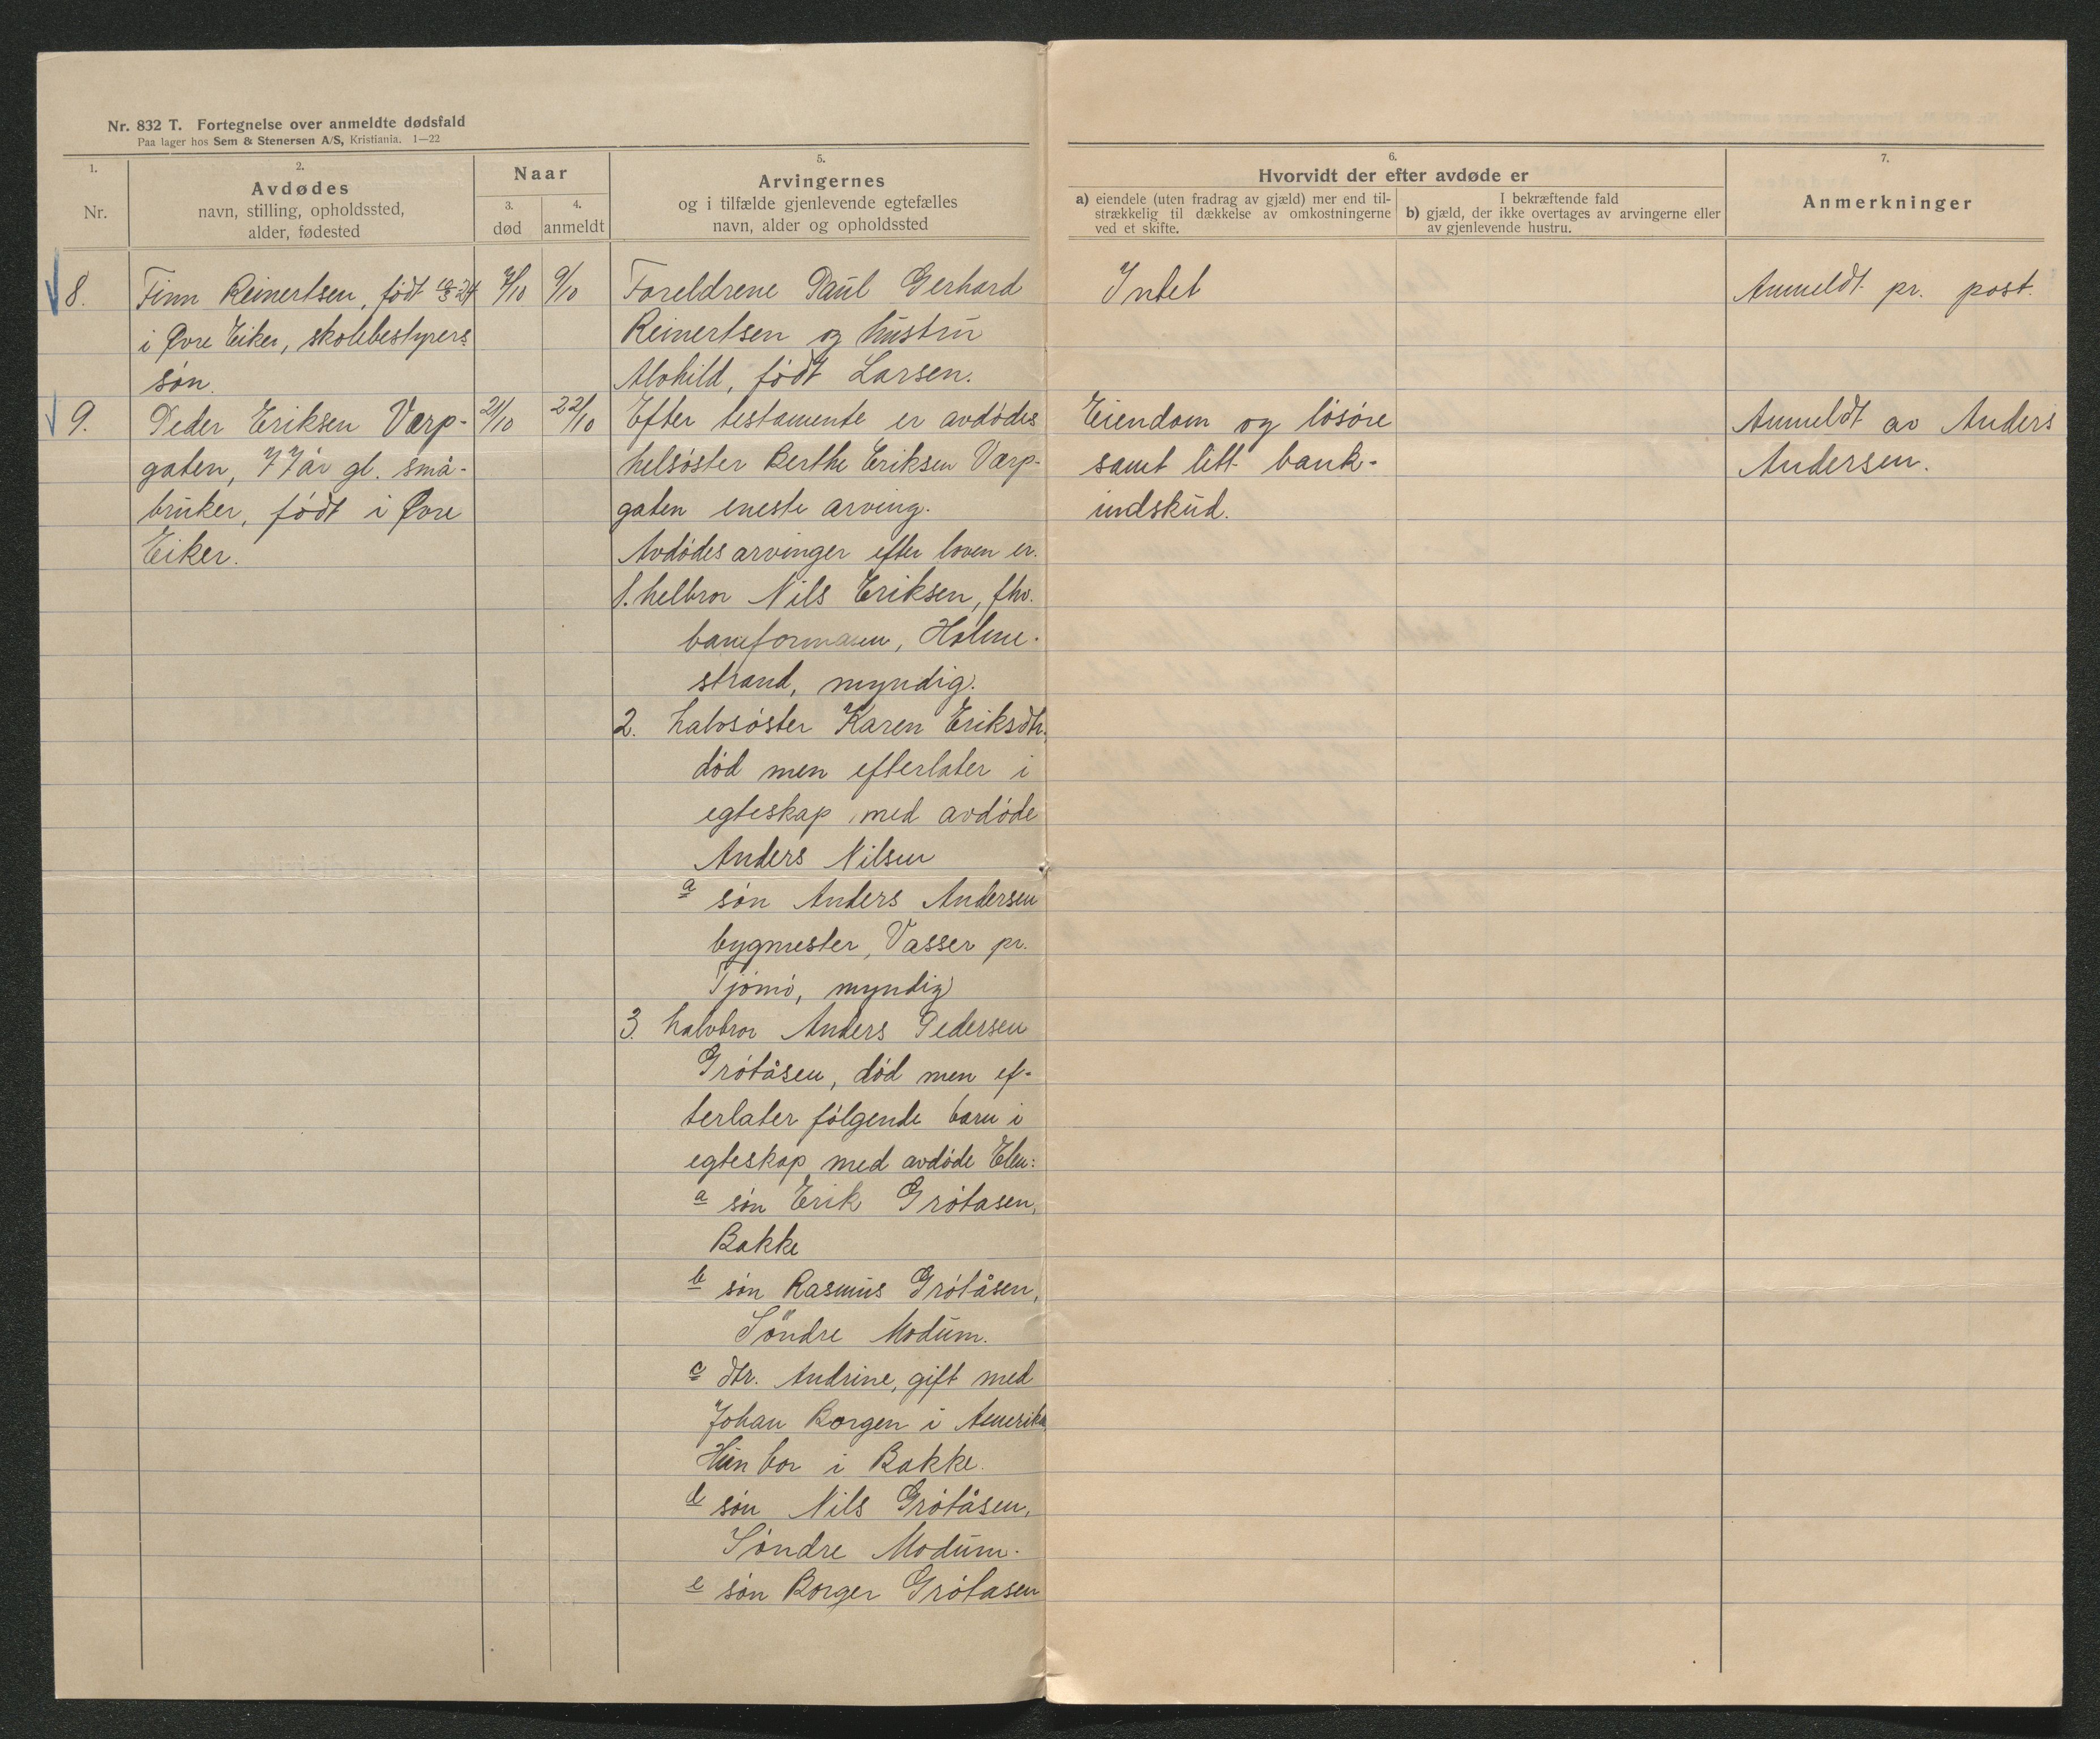 Nr. 832 T. Fortegnelse over anmeldte dødsfald
Paa lager hos Sem & Stenersen A/S, Kristiania. 1—22
1.
Nr.
2.
Avdødes
navn, stilling, opholdssted,
alder, fødested
Naar
3.
død
4.
anmeldt
5.
Arvingernes
og i tilfælde gjenlevende egtefælles
navn, alder og opholdssted
6.
Hvorvidt der efter avdøde er
a) eiendele (uten fradrag av gjæld) mer end til-
strækkelig til dækkelse av omkostningerne
ved et skifte.
I bekræftende fald
b) gjæld, der ikke overtages av arvingerne eller
av gjenlevende hustru.
7.
Anmerkninger
8.
Finn Reinertsen, født
i Øvre Eiker, skolebestyrers
søn.
7/10
9/10
Foreldrene Paul Gerhard
Reinertsen og hustru
Alohild, født Larsen.
Intet
Anmeldt pr. post.
9.
Peder Eriksen Varp-
gaten, 77 år gl. små-
bruker, født i Øvre
Eiker.
21/10
22/10
Efter testamente er avdødes
helsøster Berthe Eriksen Varp-
gaten eneste arving.
Avdødes arvinger efter loven er.
1. helbror Nils Eriksen, fhv.
baneformann, Holme-
strand, myndig.
2. halvsøster Karen Eriksdtr.
død men efterlater i
egteskap med avdøde
Anders Nilsen
a søn Anders Andersen
bygmester, Vasser pr.
Tjømø, myndig
3. halvbror Anders Pedersen
Grøtåsen, død men ef-
terlater følgende barn i
egteskap med avdøde Elen:
a søn Erik Grøtasen,
Bakke
b søn Rasmus Grøtåsen,
Søndre Modum.
c dtr. Andrine, gift med
Johan Borgen i Amerika
Hun bor i Bakke.
d søn Nils Grøtåsen,
Søndre Modum.
e søn Borger Grøtasen
Eiendom og løsøre
samt litt bank-
indskud.
Anmeldt av Anders
Andersen.